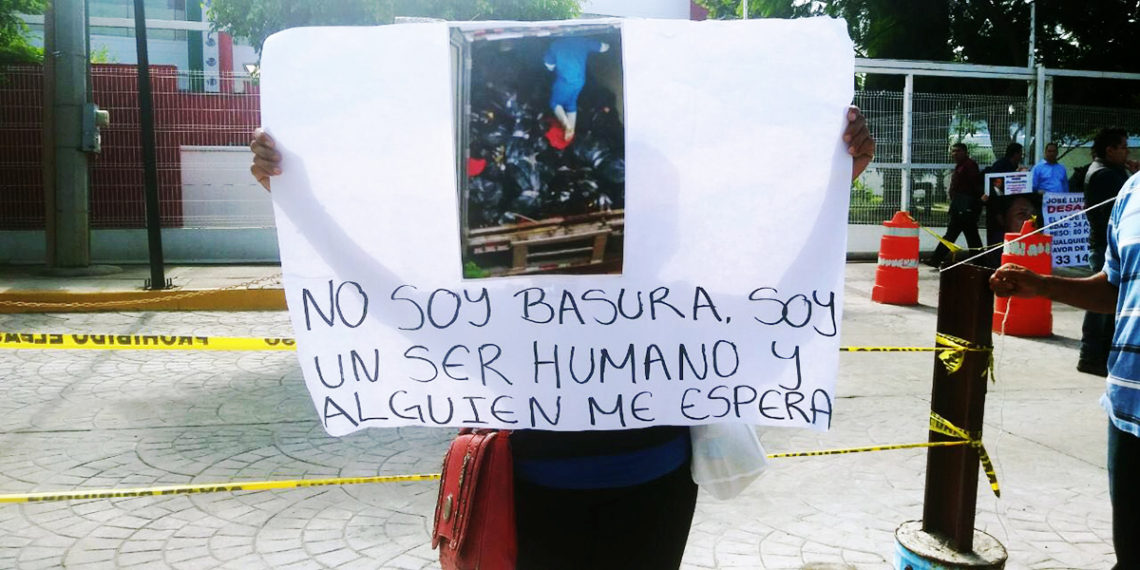 NO SOY BASURA. SOY
UN SER HUMANO Y
ALGUIEN ME ESPERA
PROHIBIDO EL PAS
JOSÉ LUI
DESA
EL 17 DE E
EDAD: 34 A
PESO: 80 K
CUALQUIE
AVOR DE
33 14